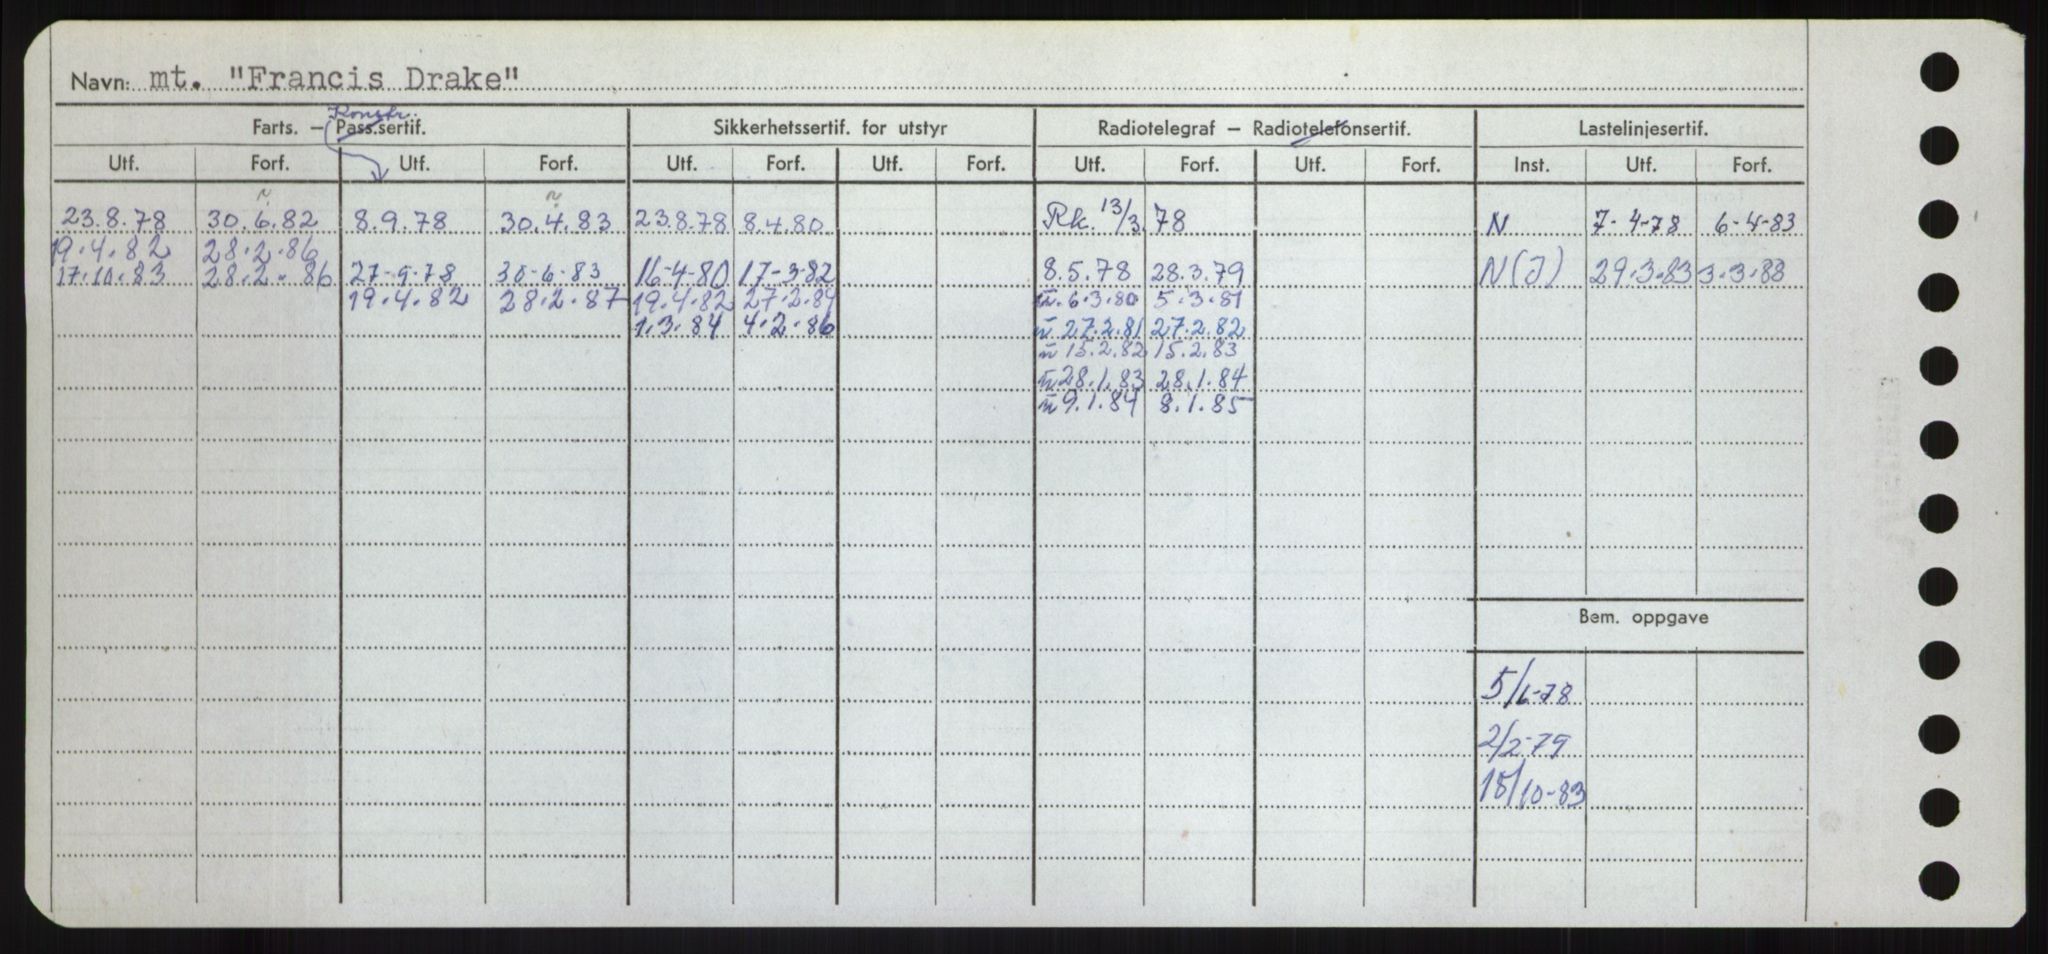 Navn: mt. "Francis Drake"
Konstr.
Farts. – Pass.sertif. Sikkerhetssertif. for utstyr Radiotelegraf – Radiotelefonsertif. Lastelinjesertif.
Utf. Forf. Utf. Forf. Utf. Forf. Utf. Forf. Utf. Forf. Utf. Forf. Inst. Utf. Forf.
23.8.78 30.6.82 8.9.78 30.4.83 23.8.78 8.4.80 Rk. 13/3.78 N 7-4-78 6-4-83
19.4.82 28.2.86
17.10.83 28.2.86 27-9-78 30-6-83 16-4-80 17-3-82 8.5.78 28.3.79 N(J) 29.3.83 3.3.88
19.4.82 28.2.87 19.4.82 27.2.84 6.3.80 5.3.81
1.3.84 4.2.86 27.2.81 27.2.82
15.2.82 15.2.83
28.1.83 28.1.84
9.1.84 8.1.85
Bem. oppgave
5/6-78
2/2-79
18/10-83